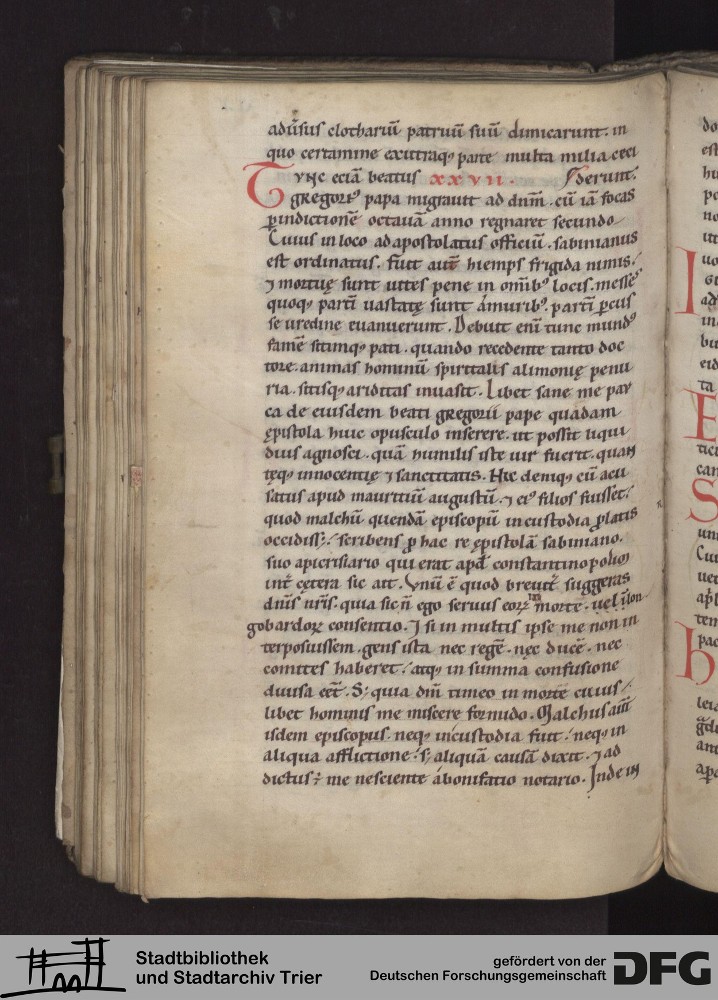 adūsus clothariū patruū suū dimicarunt. in
quo certamine exutraq; parte multa milia ceci
Tvnc eciā beatus xxvii. derunt.
gregori⁹ papa migrauit ad dnm̄. cū iā focas
ꝑindictionē octauā anno regnaret secundo
Cuius in loco ad apostolatus officiū. sabinianus
est ordinatus. fuit aut̄ hiemps frigida nimis.
⁊ mortuę sunt uites pene in omīb⁹ locis. messes
quoq; parti᷑ uastatę sunt á muribꝰ. parti᷑ ꝑcus
se uredine euanuerunt. Debuit eni᷑ tunc mundꝰ
famē sitimq; pati. quando recedente tanto doc
tore. animas hominū spiritalis alimonię penu
ria. sitisq; ariditas inuasit. Libet sane me pau
ca de eiusdem beati gregorii pape quadam
ępistola huic opusculo inserere. ut possit liqui
dius agnosci. quā humilis iste uir fuerit. quan
tęq; innocentię ⁊ sanctitatis. Hic deniq; cū acu
satus apud mauritiū augustū. ⁊ ei⁹ filios fuisset.
quod malchū quendā episcopū in custodia ꝓ latis
occidiss;. scribens ꝓ hac re ępistolā sabiniano.
suo apicrisiario qui erat apd̄ constantinopolim
int̄ cętera sic ait. Vnū ē quod breuit̄ suggeras
dn̄is nr̄is. quia sic n̄ ego seruus eoꝝ in morte. uel lon
gobardoꝝ consentio. ⁊ si in multis ipse me non in
terposuissem. gens ista nec regē. nęc ducē. nec
comites haberet. atq; in summa confusione
diuisa eēt. S; quia dm̄ timeo in mortē cuius
libet hominis me miscere formido. Malchus aūt
isdem episcopus. neq; in custodia fuit. neq; in
aliqua afflictione. s; aliquā causā dixit. ⁊ ad
dictus; me nesciente á bonifatio notario. Inde in
Stadtbibliothek
und Stadtarchiv Trier
gefördert von der
Deutschen Forschungsgemeinschaft
DFG